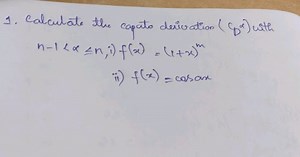 1. Calculate the caputo derivation (ᶜDᵅ) with
n-1 < α ≤ n, i) f(x) = (1+x)ᵐ
ii) f(x) = cosax